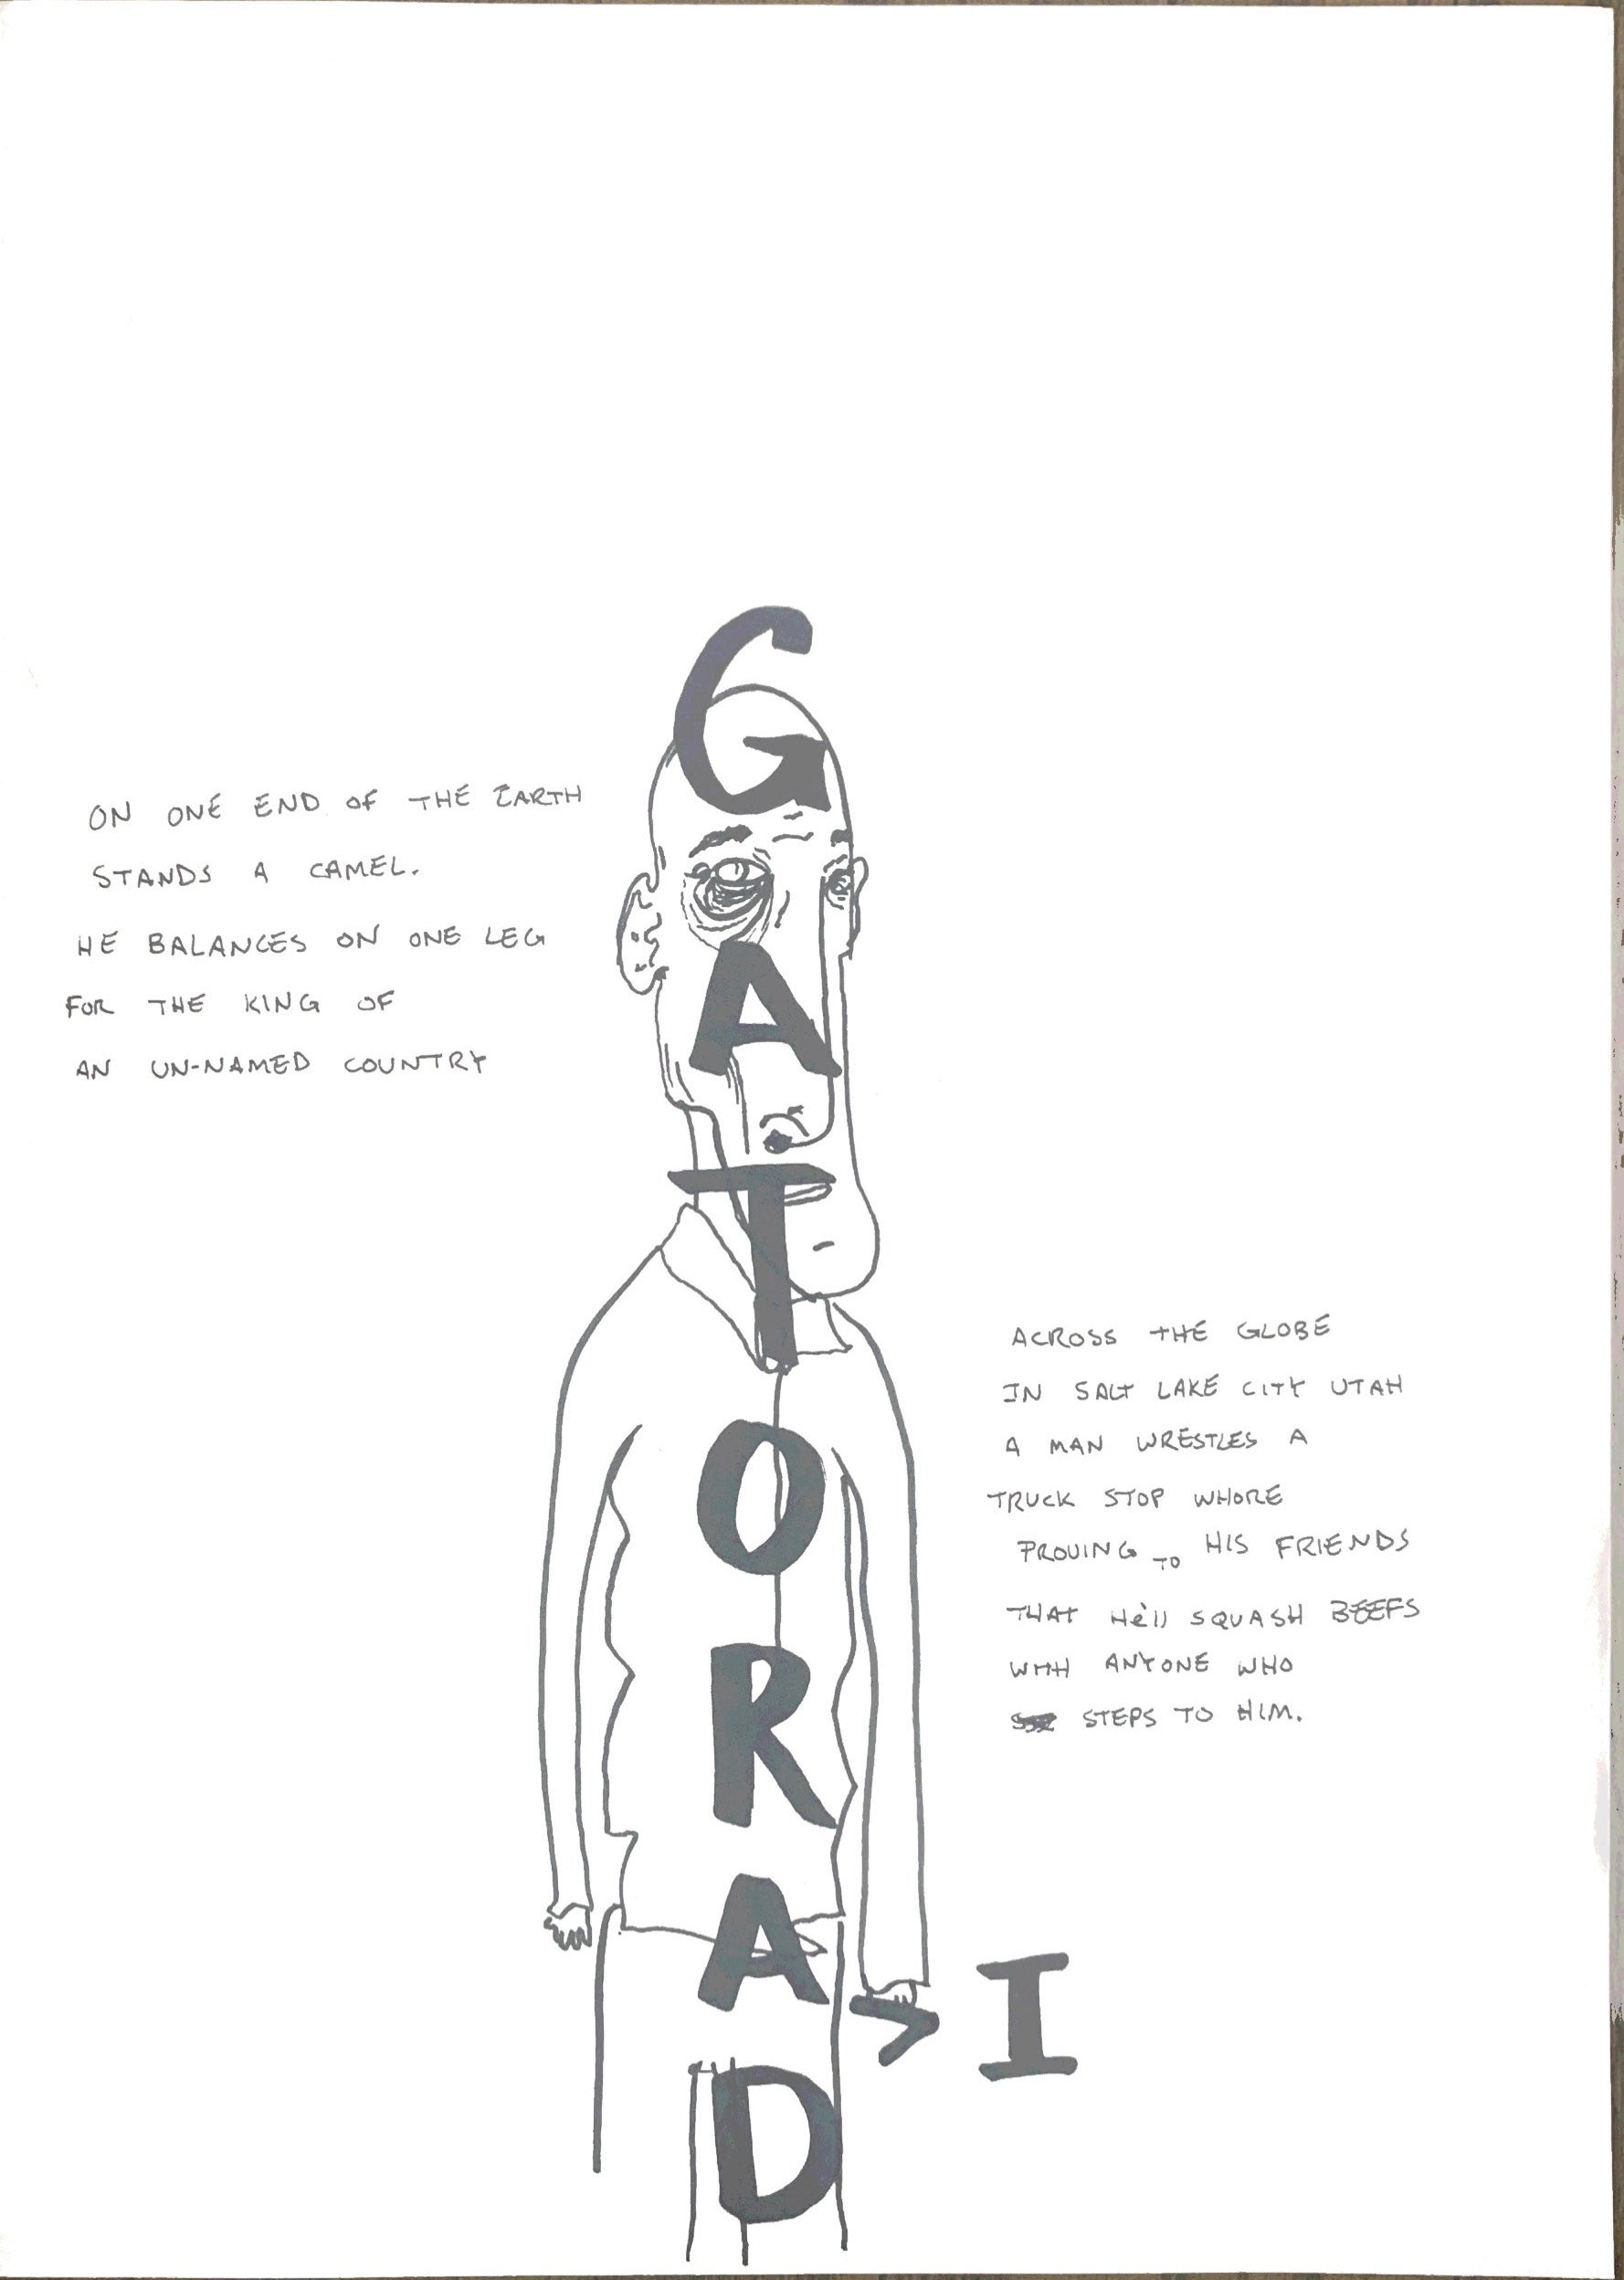 G
A
T
O
R
A
D
> I
ON ONE END OF THE EARTH
STANDS A CAMEL.
HE BALANCES ON ONE LEG
FOR THE KING OF
AN UN-NAMED COUNTRY
ACROSS THE GLOBE
IN SALT LAKE CITY UTAH
A MAN WRESTLES A
TRUCK STOP WHORE
PROVING TO HIS FRIENDS
THAT He'll SQUASH BEEFS
WITH ANYONE WHO
STEPS TO HIM.